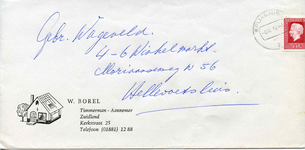 Gebr. Wageveld.
4-6 Winkelmarkt.
N 56
Hellevoetsluis.
W. BOREL
Timmerman - Aannemer
Zuidland
Kerkstraat 25
Telefoon (01881) 12 88